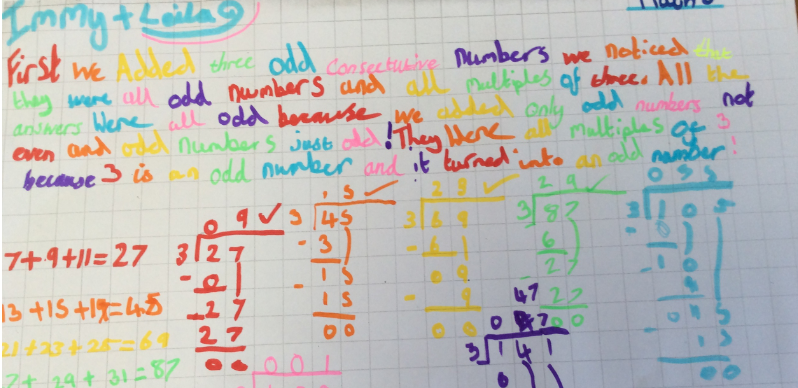 Immy + Leila
First we Added three odd consectutive numbers we noticed that
they were all odd numbers and all multiples of three. All the
answers Were all odd because we added only odd numbers not
even and odd numbers just odd! They Were all multiples of 3
because 3 is an odd number and it turned into an odd number!
7+9+11=27
0 9 ✓
3 27
- 0
27
27
00
13+15+17=45
15 ✓
3 45
- 3
15
15
00
21+23+25=69
23 ✓
3 69
- 6
09
- 9
00
29 ✓
3 87
6
27
27
00
+ 29 + 31 = 87
035
3 105
- 0
10
- 9
015
- 15
00
47
0 47
3 141
0
001